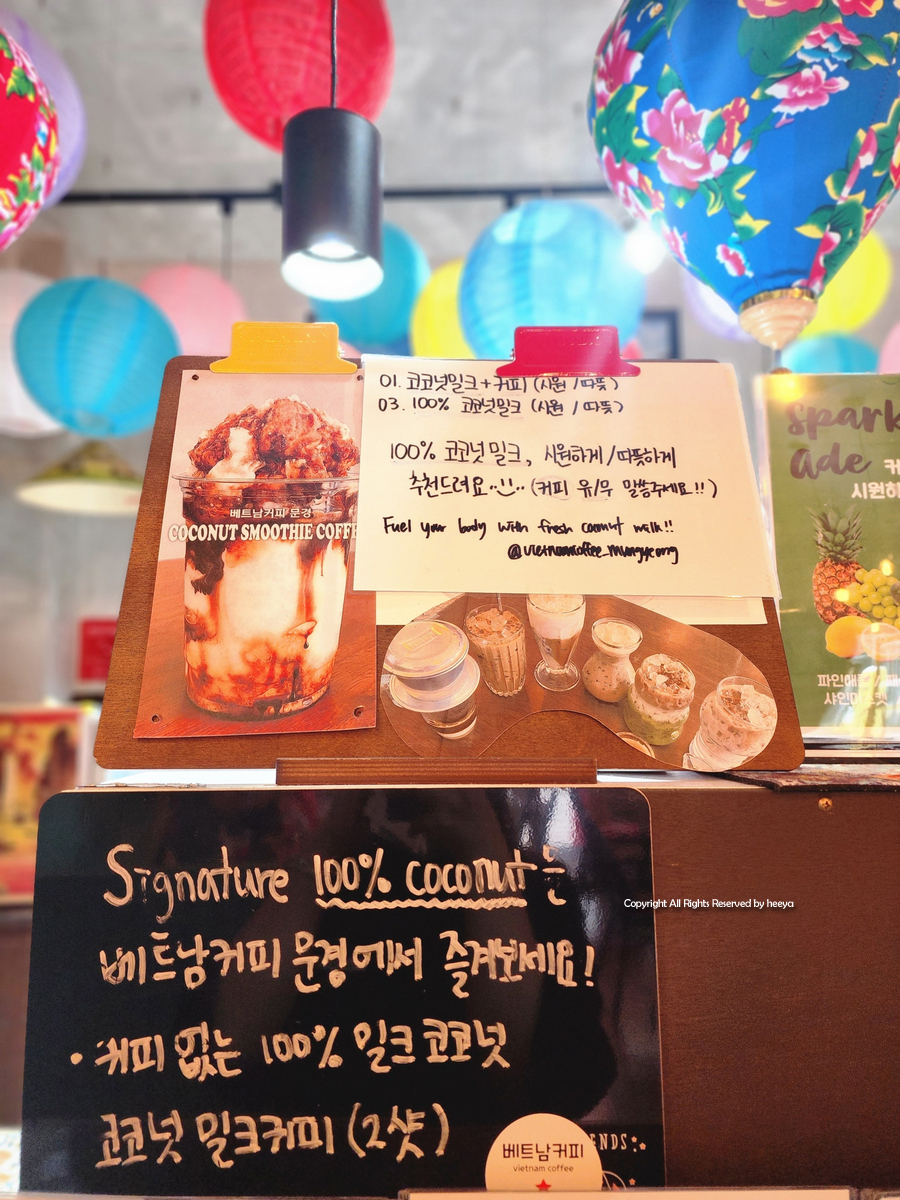 01. 코코넛밀크+커피 (시원 / 따뜻)
03. 100% 코코넛밀크 (시원 / 따뜻)
100% 코코넛 밀크, 시원하게/따뜻하게
추천드려요..!.. (커피 유/무 말씀주세요!!)
Fuel your body with fresh coconut milk!!
@vietnamcoffee_mungyeong
베트남커피 문경
COCONUT SMOOTHIE COFFE
Spark
Ade 커
시원하
파인애플/
샤인머스캣
Signature 100% coconut는
베트남커피 문경에서 즐겨보세요!
• 커피 없는 100% 밀크코코넛
코코넛 밀크커피 (2샷)
베트남커피
vietnam coffee
ENDS
Copyright All Rights Reserved by heeya